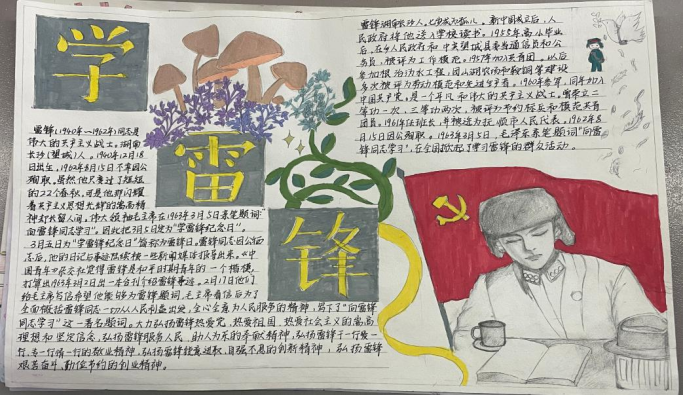 学
雷
锋
雷锋(1940年~1962年)同志是
伟大的共产主义战士。湖南
长沙(望城)人。1940年12月18
日出生。1962年8月15日不幸因公
殉职。虽然他只走过了短短
的22个春秋,可是他那闪耀
着共产主义思想光辉的崇高精
神却长留人间。伟大领袖毛主席在1963年3月5日亲笔题词
"向雷锋同志学习"。因此把3月5日定为"学雷锋纪念日"。
三月五日为"学雷锋纪念日"简称为雷锋日。雷锋同志因公牺
志后,他的日记与事迹陆续被一些新闻媒体报导出来。《中
国青年》杂志社觉得雷锋是和平时期青年的一个楷模,
打算1963年3月2日出一本合刊介绍雷锋事迹。2月17日他们
给毛主席写信希望他能够为雷锋题词。毛主席看信后为了
全面概括雷锋同志一切从人民利益出发,全心全意为人民服务的精神,写下了"向雷锋
同志学习"这一著名题词。大力弘扬雷锋热爱党,热爱祖国,热爱社会主义的崇高
理想和坚定信念,弘扬雷锋服务人民、助人为乐的奉献精神,弘扬雷锋干一行爱一
行、专一行精一行的敬业精神,弘扬雷锋锐意进取、自强不息的创新精神,弘扬雷锋
艰苦奋斗、勤俭节约的创业精神。
雷锋湖南长沙人。七岁成为孤儿。新中国成立后,人
民政府将他送入学校读书。1956年高小毕业
后,在乡人民政府和中共望城县委当通信员和公
务员,被评为工作模范。1957年加入共青团。以后
参加根治沩水工程、团山湖农场和鞍钢等建设
多次被评为劳动模范和先进生产者。1960年参军,同年加入
中国共产党。是一个平凡和伟大的共产主义战士。雷锋立二
等功一次,三等功两次,被评为节约标兵和模范共青
团员。1961年任班长,并被选为抚顺市人民代表。1962年8
月15日因公殉职。1963年3月5日,毛泽东亲笔题词"向雷
锋同志学习",在全国掀起了学习雷锋的群众活动。